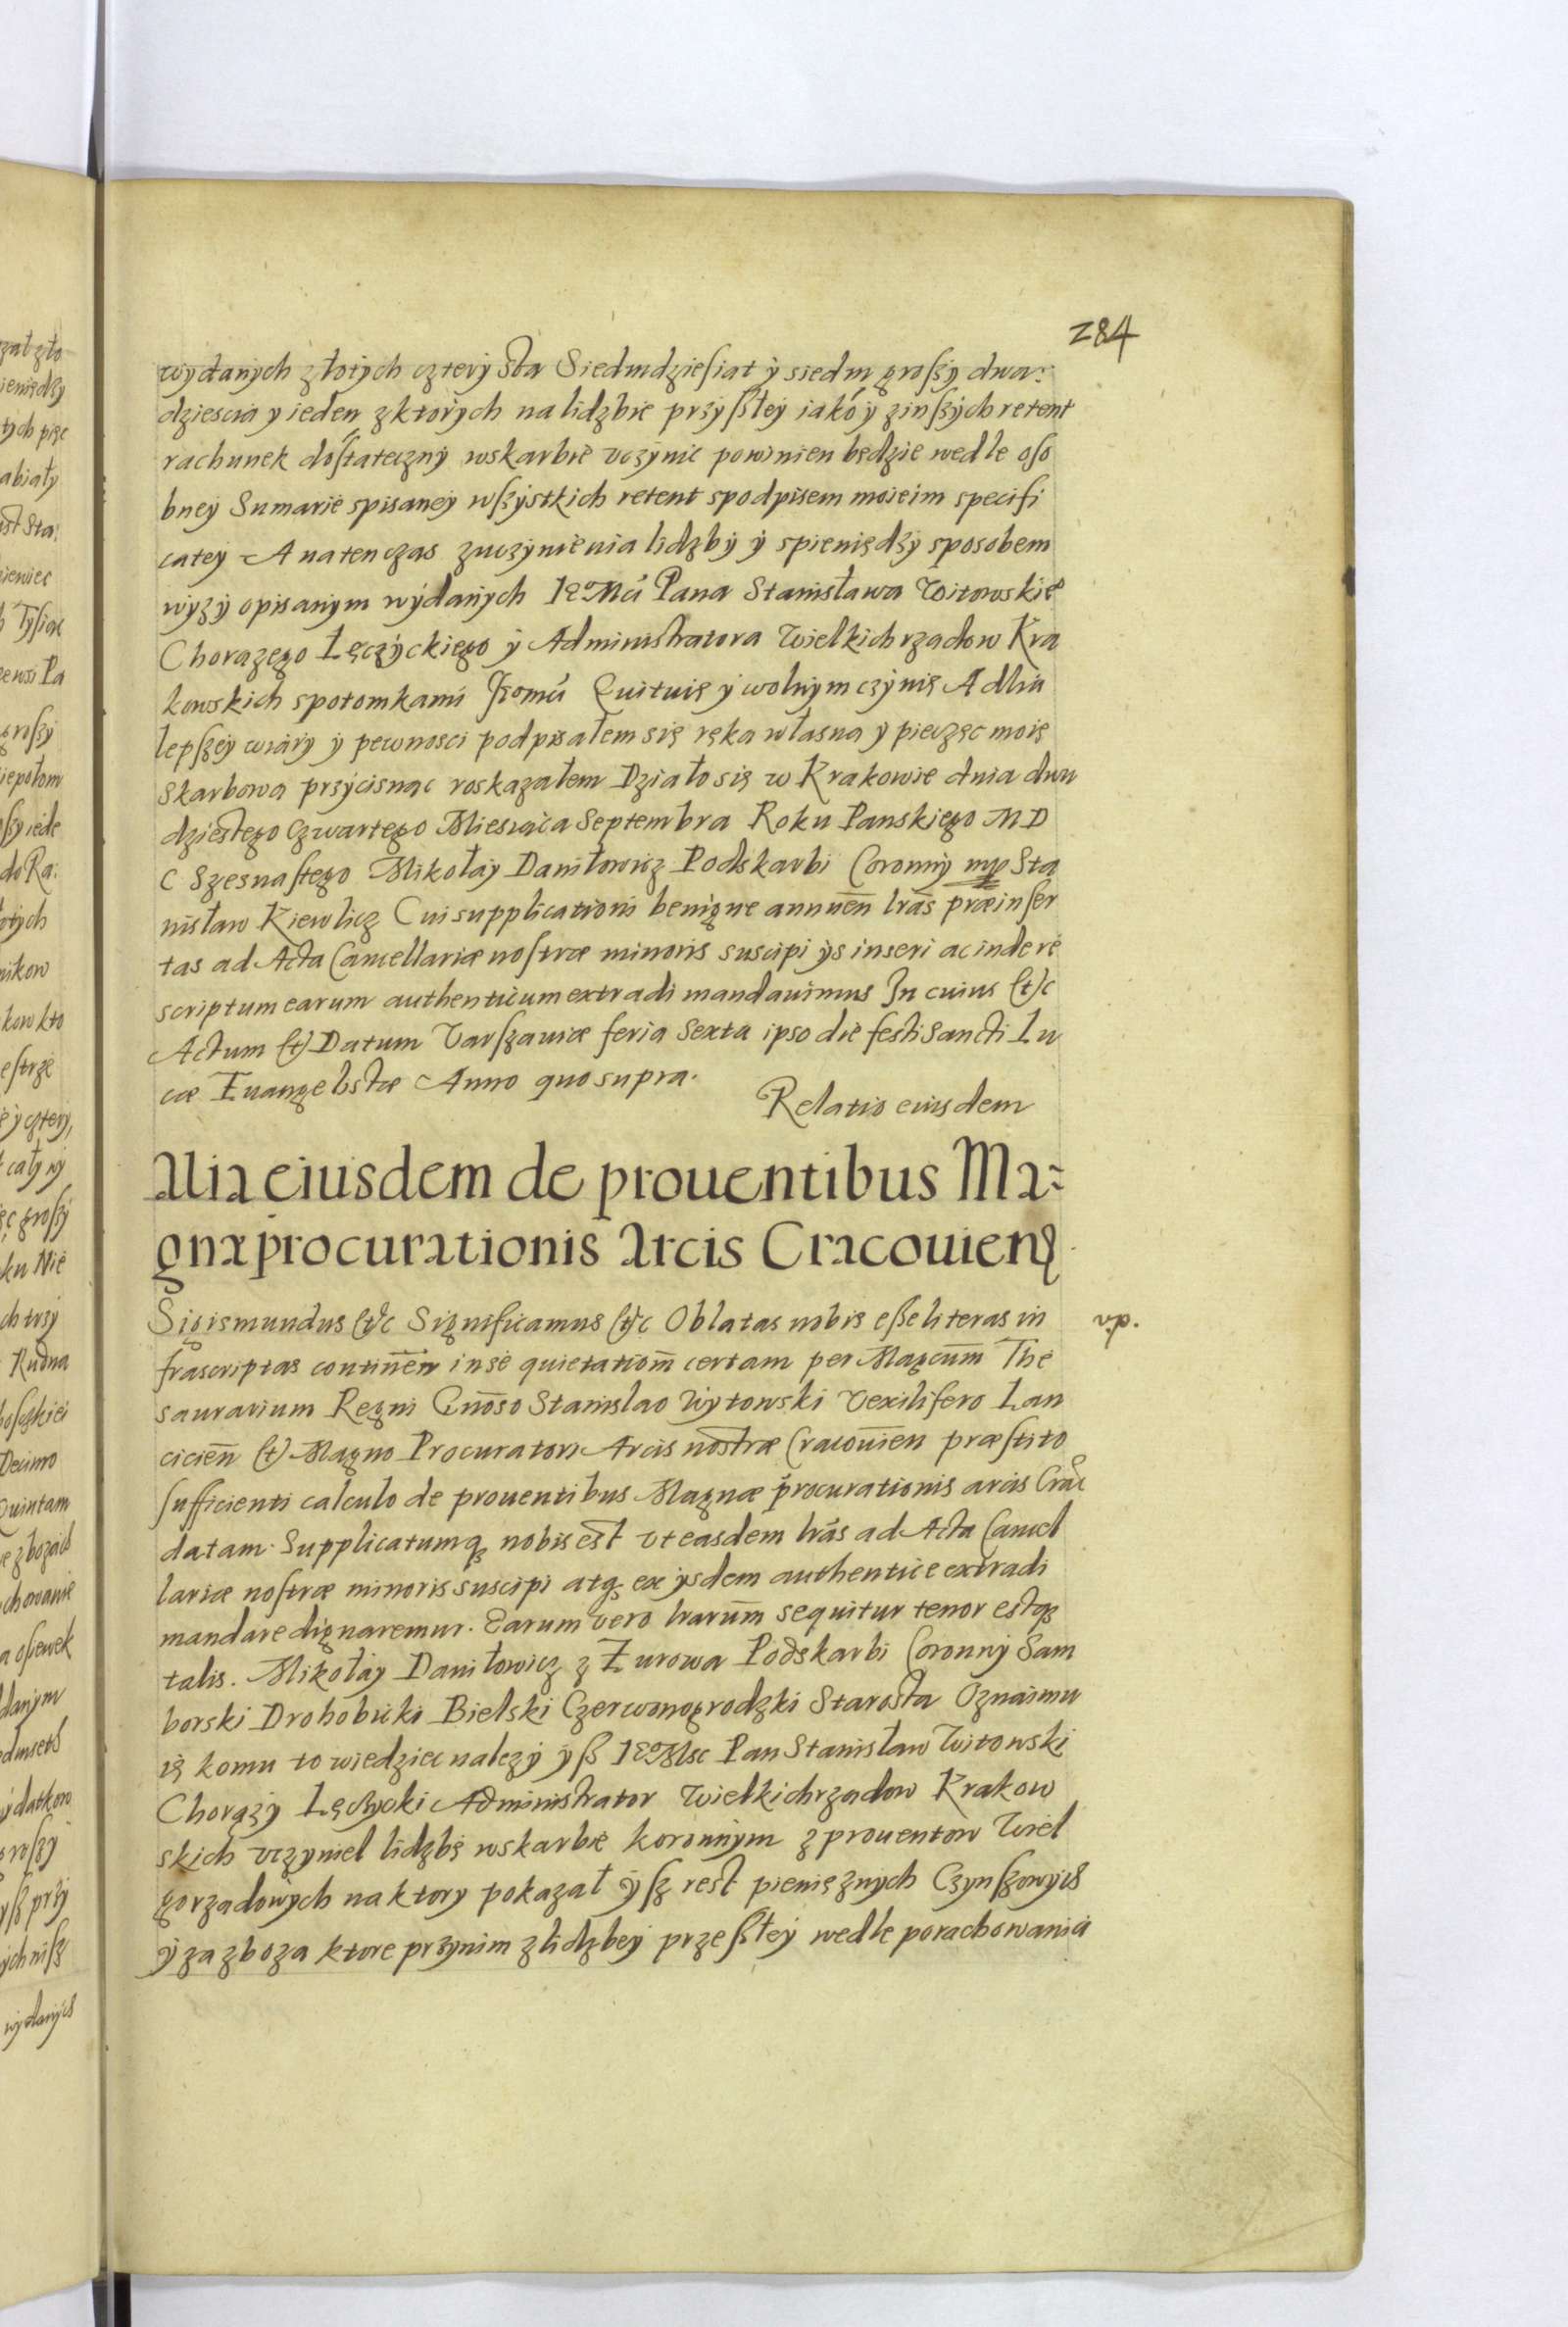 284
wydanych złotych cztery sta Siedmdziesiat y siedm groszy dwa:
dziescia y ieden z ktorych na lidzbie przyszłey iako y z inszych retent
rachunek dostateczny wskarbie vczynic powinien będzie wedle oso
bney Sumarie spisaney wszystkich retent spodpisem moieim specifi
catey A natenczas z vczynienia lidzby y spieniędzy sposobem
wyzy opisanym wydanych Je͠o Mci Pana Stanisława Witowskie͠
Chorazego Łęczyckiego y Administratora Wielkich rzadow Kra
kowskich spotomkami Je͠o Mci Quituię y wolnym czynię A dlia
lepszey wiary y pewnosci podpisałem się ręka własna y pieczęc moię
skarbowa przycisnąc roskazałem Działo się w Krakowie dnia dwu
dziestego czwartego Miesiaca Septembra Roku Panskiego MD
C Szesnastego Mikołay Daniłowicz Podskarbi Coronny mp Sta
nisław Kiewlicz Cui supplicationi benigne annuen̄ lr̄as præinser
tas ad Acta Cancellariæ nostræ minoris suscipi ijs inseri ac inde re
scriptum earum authenticum extradi mandauimus In cuius (et)c
Actum (et) Datum Varszauiæ feria Sexta ipso die festi Sancti Lu
cæ Euangelistæ Anno quo supra.
Relatio eiusdem
Alia eiusdem de prouentibus Ma-
gnæ procurationis Arcis Cracouien̄
Sigismundus (et)c Significamus (et)c Oblatas nobis esse literas in
frascriptas continen̄ in se quietation̄ certam per Magcum̄ The
saurarium Regni Gn̄oso Stanislao Wytowski Vexilifero Lan
cicien̄ (et) Magno Procuratori Arcis nostræ Cracouien̄ præstito
sufficienti calculo de prouentibus Magnæ procurationis arcis Crac̄
datam. Supplicatumq3 nobis est vt easdem lr̄as ad Acta Cancel
lariæ nostræ minoris suscipi atq3 ex ijsdem authentice extradi
mandare dignaremur. Earum vero lrarum̄ sequitur tenor estq3
talis. Mikołay Daniłowicz z Zurowa Podskarbi Coronny Sam
borski Drohobicki Bielski Czerwonogrodzki Starosta Oznaimu
ię komu to wiedziec nalezy yß Je͠o Msc Pan Stanisław Witowski
Chorązy Łęczycki Administrator Wielkich rzadow Krakow
skich vczyniel lidzbę wskarbie koronnym z prouentow Wiel
gorzadowych na ktory pokazał ysz rest pieniężnych Czynszowych
y za zboza ktore przy nim z lidzbey przeszłey wedle porachowania